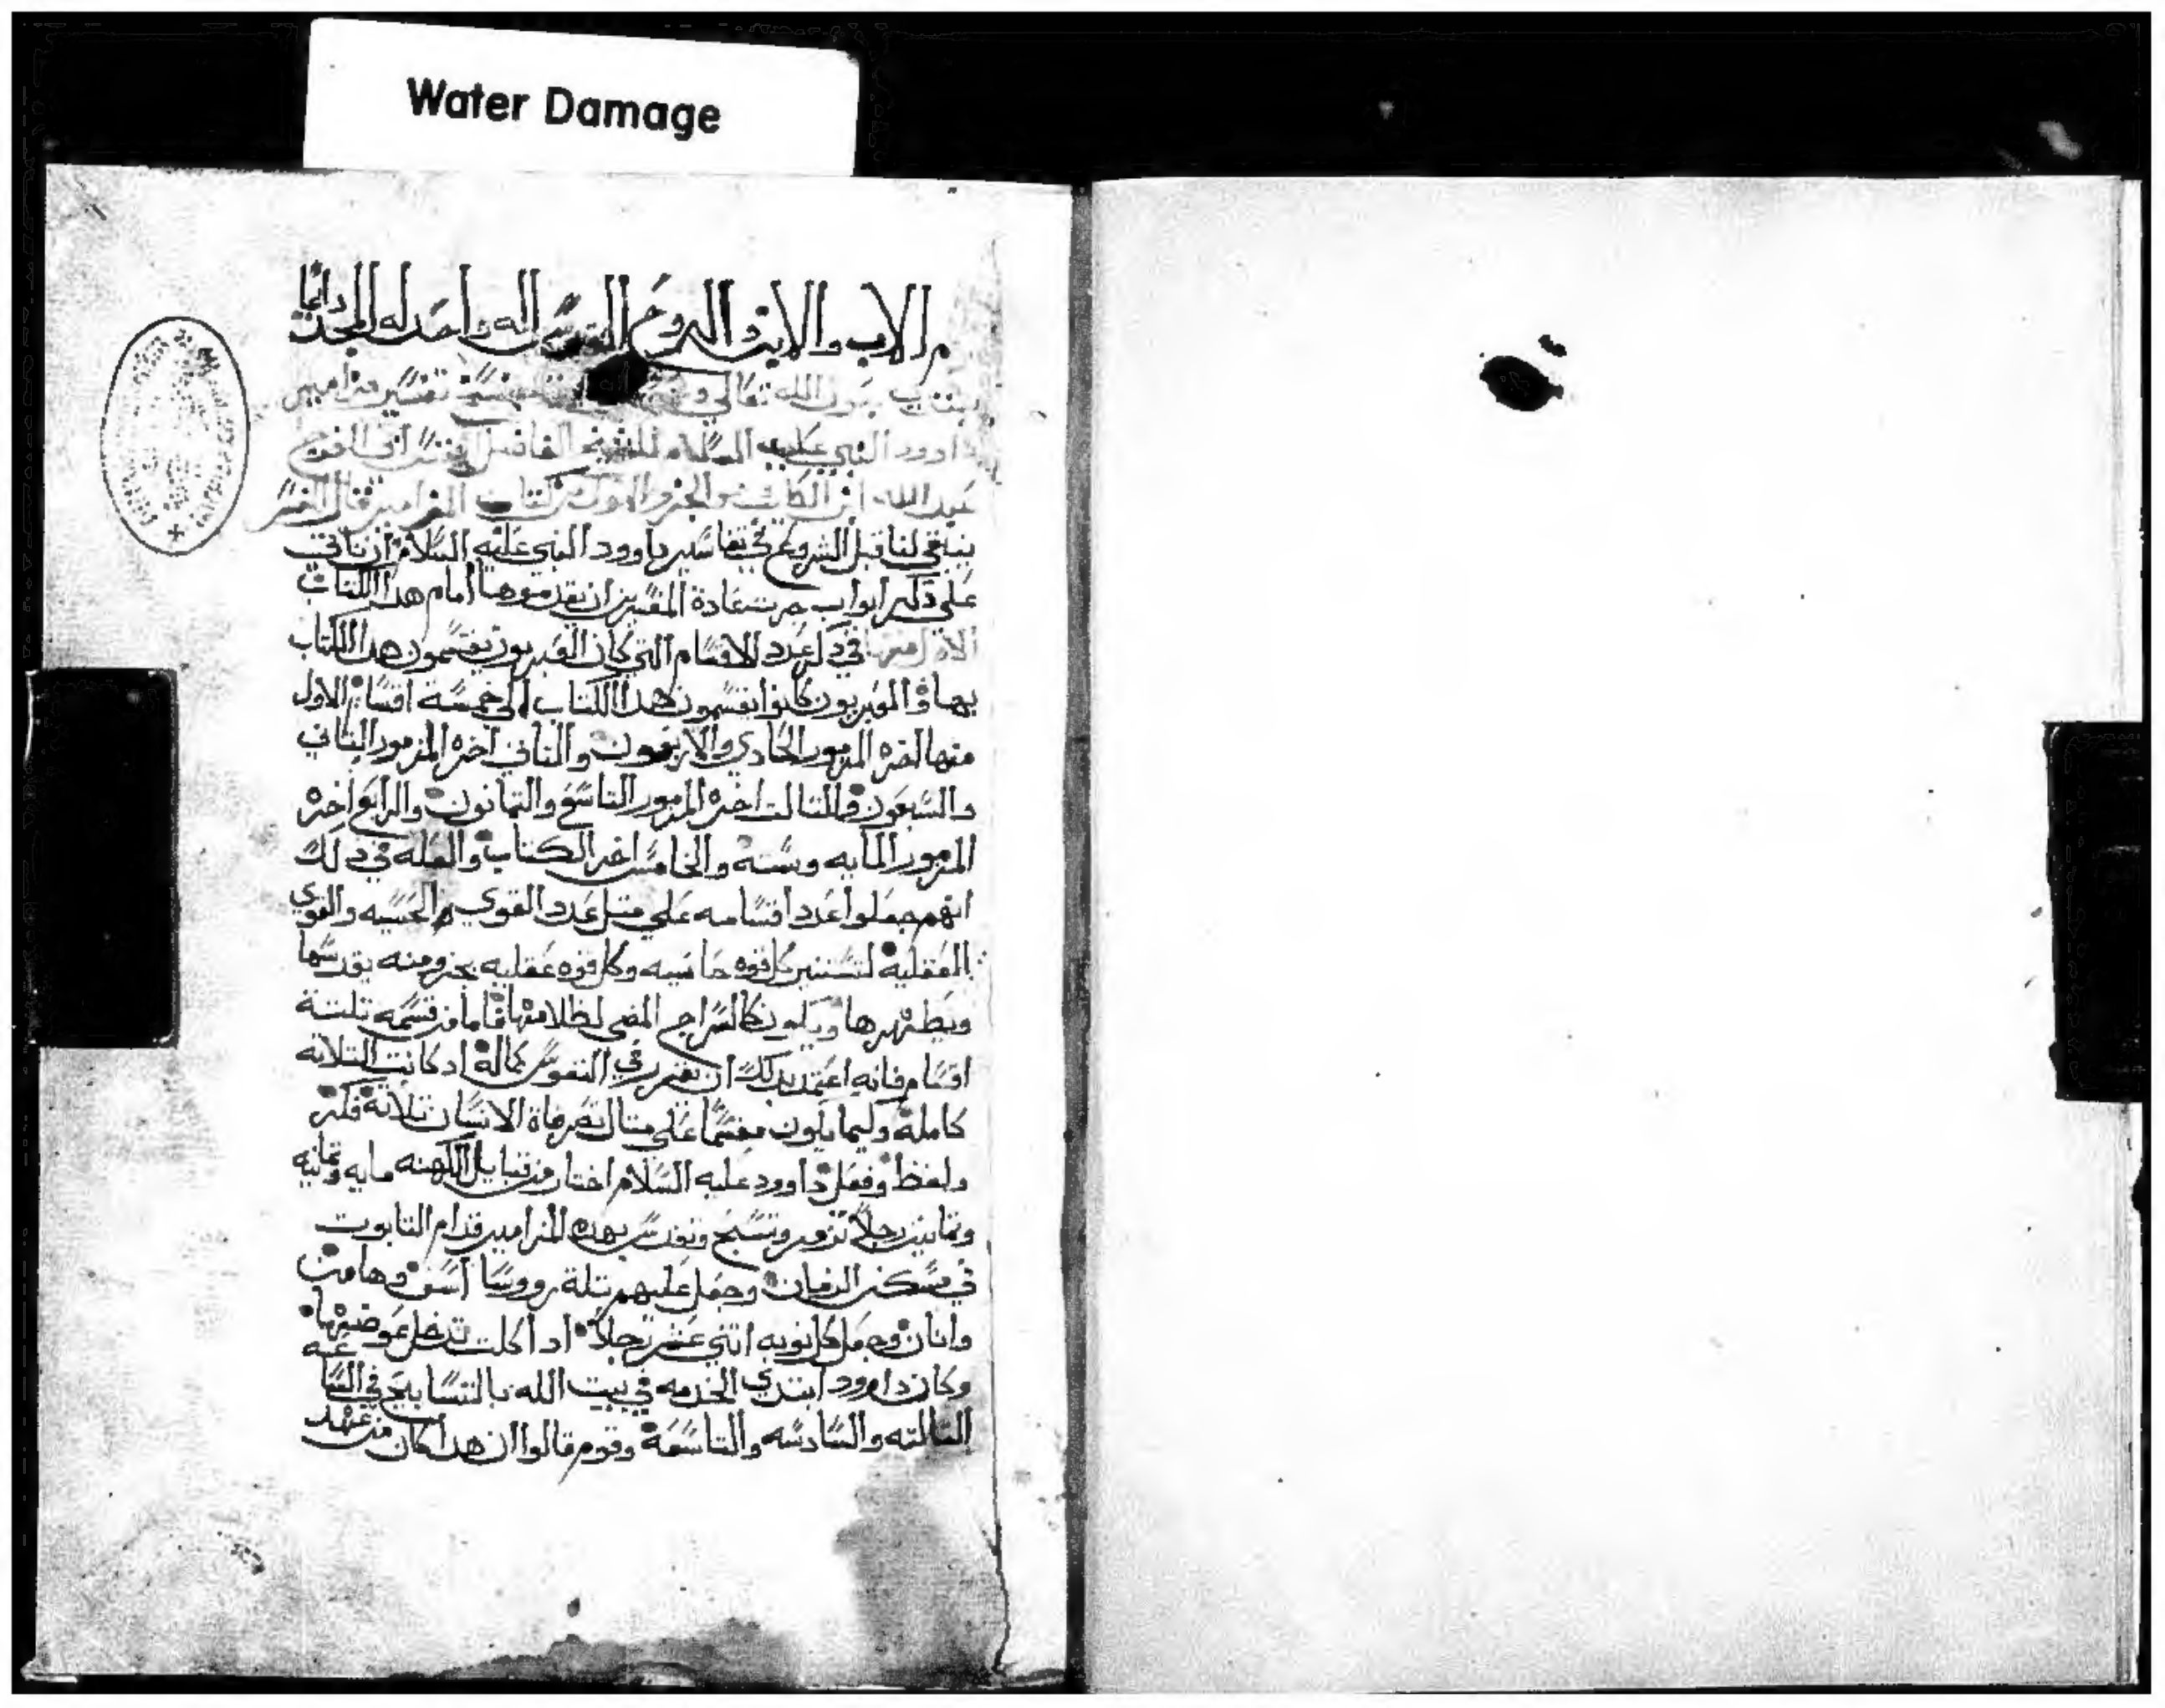 Water Damage
الاب والابن والروح القدس اله واحد له المجد دايمًا
بعون الله تعالي تفسير مزامير
داوود النبي عليه السلام للشيخ الفاضل القس ابي الفرج
عبد الله ابن الطيب الجزو الاول من كتاب المزامير قال المفسر
ينبغي لنا قبل الشروع في تفاسير داوود النبي عليه السلام ان ناتي
علي ذكر ابواب جرت عادة المفسرين ان يقدموها امام هدا الكتاب
الاول منها في ذكر عدد الاقسام التي كان العبريون يقسمون هدا الكتاب
بها والعبريون كانوا يقسمون هدا الكتاب الي خمسة اقسام الاول
منها اخره المزمور الحادي والاربعون والتاني اخره المزمور التاني
والسبعون والتالت اخره المزمور التاسع والتمانون والرابع اخره
المزمور المايه وسته والخامس اخر الكتاب والعله في دلك
انهم جعلوا عدد اقسامه علي متل عدد القوي الحسيه والقوي
العقليه لتستنير كل قوه حاسيه وكل قوه عقليه بجزو منه يقدسها
ويطهرها ويكون كالسراج المضي لظلامتها فاما من قسمه تلتة
اقسام فانه اعتمد بدلك ان يقرر في النفوس كماله اد كانت التلاته
كاملة وليما يكون مقسمًا علي متال تصرفاة الانسان تلاتة فكر
ولفظ وفعل داوود عليه السلام اختار من قبايل الكهنه مايه وتمانيه
وتمانين رجلاً تزمر وتسبح وتقدس بهده المزامير قدام التابوت
في مسكن الزمان وجعل عليهم تلتة رووسا اسف وهامن
واتان وجعل كل نوبه اتني عشر رجلاً ادا كلت تدخل عوضها
وكان داوود ابتدي الخدمه في بيت الله بالتسابيح في الساعه
التالته والسادسه والتاسعة وقوم قالوا ان هدا كان من عهد